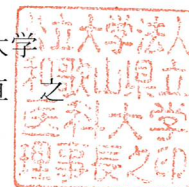 大学
之
公立大学法人
和歌山県立
医科大学
理事長之印